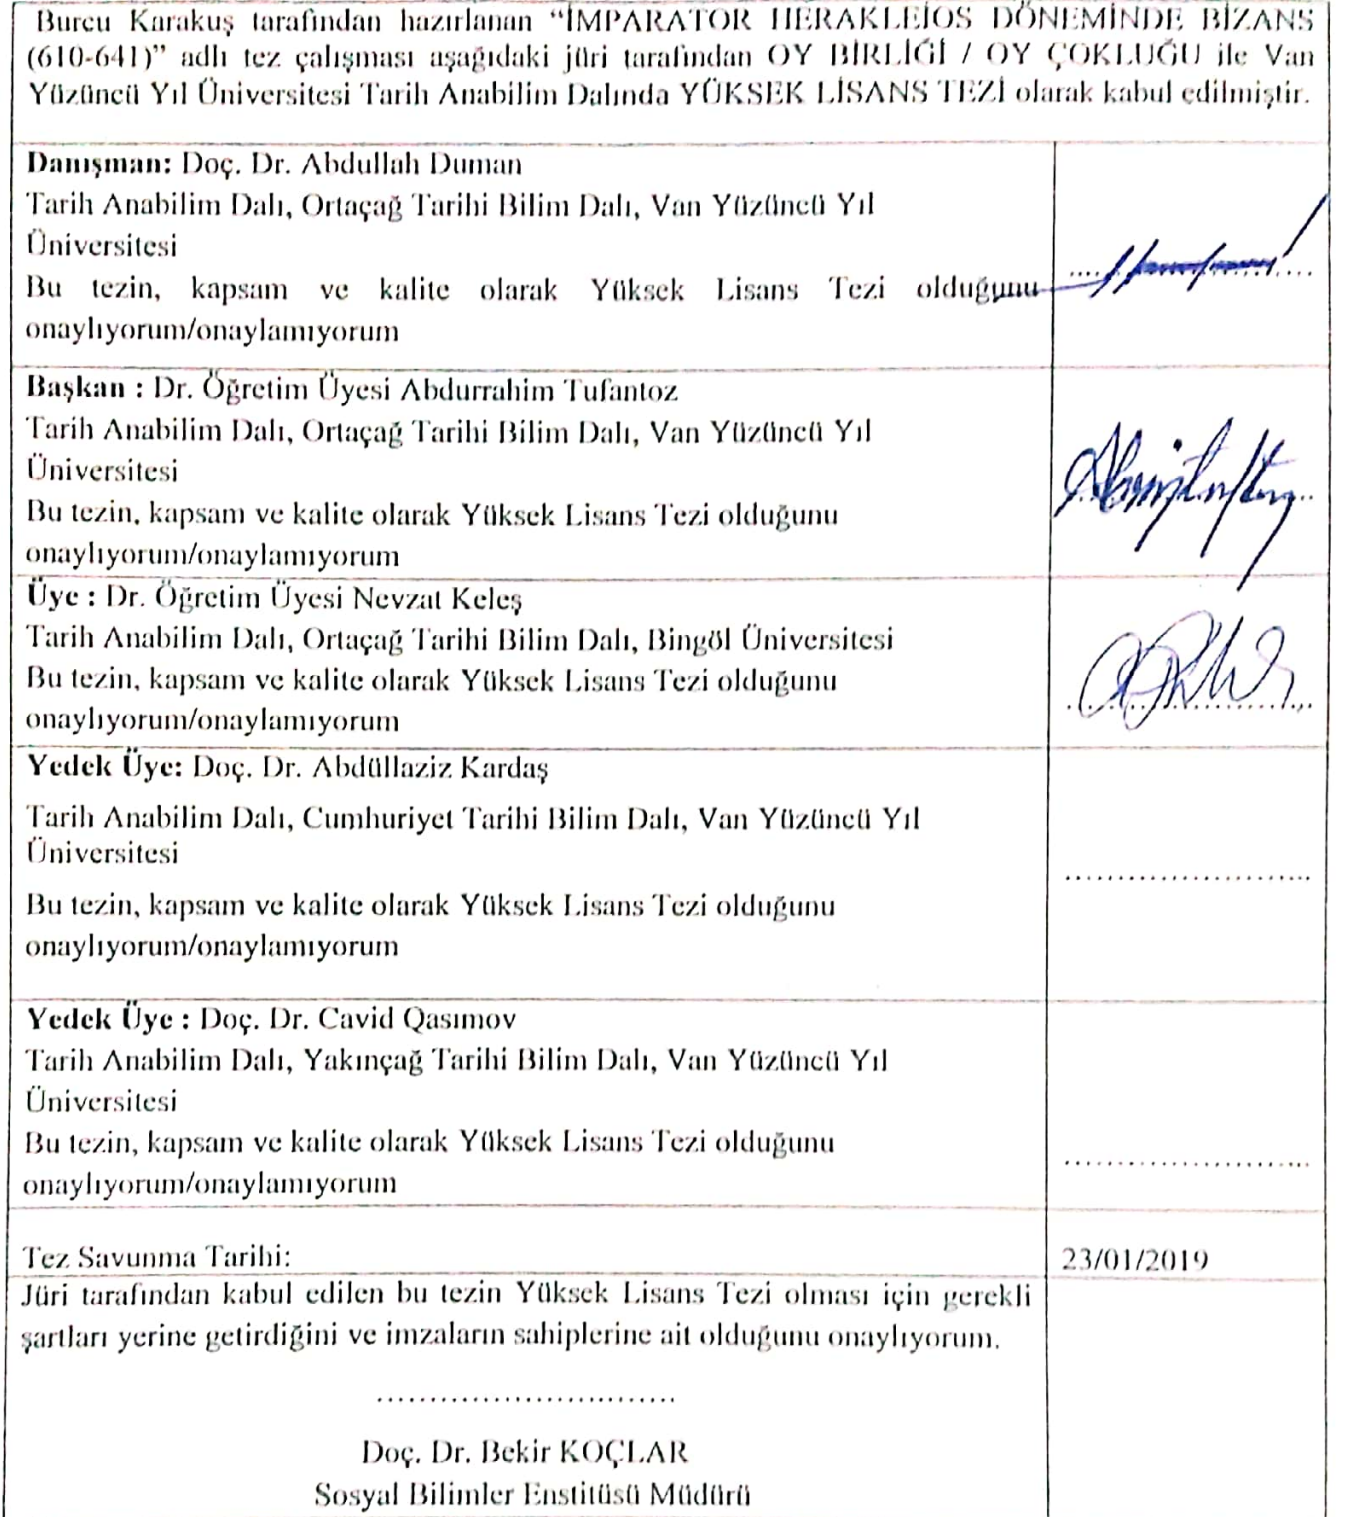 Burcu Karakuş tarafından hazırlanan “İMPARATOR HERAKLEİOS DÖNEMİNDE BİZANS
(610-641)” adlı tez çalışması aşağıdaki jüri tarafından OY BİRLİĞİ / OY ÇOKLUĞU ile Van
Yüzüncü Yıl Üniversitesi Tarih Anabilim Dalında YÜKSEK LİSANS TEZİ olarak kabul edilmiştir.
Danışman: Doç. Dr. Abdullah Duman
Tarih Anabilim Dalı, Ortaçağ Tarihi Bilim Dalı, Van Yüzüncü Yıl
Üniversitesi
Bu tezin, kapsam ve kalite olarak Yüksek Lisans Tezi olduğunu
onaylıyorum/onaylamıyorum
Başkan : Dr. Öğretim Üyesi Abdurrahim Tufantoz
Tarih Anabilim Dalı, Ortaçağ Tarihi Bilim Dalı, Van Yüzüncü Yıl
Üniversitesi
Bu tezin, kapsam ve kalite olarak Yüksek Lisans Tezi olduğunu
onaylıyorum/onaylamıyorum
Üye : Dr. Öğretim Üyesi Nevzat Keleş
Tarih Anabilim Dalı, Ortaçağ Tarihi Bilim Dalı, Bingöl Üniversitesi
Bu tezin, kapsam ve kalite olarak Yüksek Lisans Tezi olduğunu
onaylıyorum/onaylamıyorum
Yedek Üye: Doç. Dr. Abdüllaziz Kardaş
Tarih Anabilim Dalı, Cumhuriyet Tarihi Bilim Dalı, Van Yüzüncü Yıl
Üniversitesi
Bu tezin, kapsam ve kalite olarak Yüksek Lisans Tezi olduğunu
onaylıyorum/onaylamıyorum
Yedek Üye : Doç. Dr. Cavid Qasımov
Tarih Anabilim Dalı, Yakınçağ Tarihi Bilim Dalı, Van Yüzüncü Yıl
Üniversitesi
Bu tezin, kapsam ve kalite olarak Yüksek Lisans Tezi olduğunu
onaylıyorum/onaylamıyorum
Tez Savunma Tarihi: 23/01/2019
Jüri tarafından kabul edilen bu tezin Yüksek Lisans Tezi olması için gerekli
şartları yerine getirdiğini ve imzaların sahiplerine ait olduğunu onaylıyorum.
Doç. Dr. Bekir KOÇLAR
Sosyal Bilimler Enstitüsü Müdürü